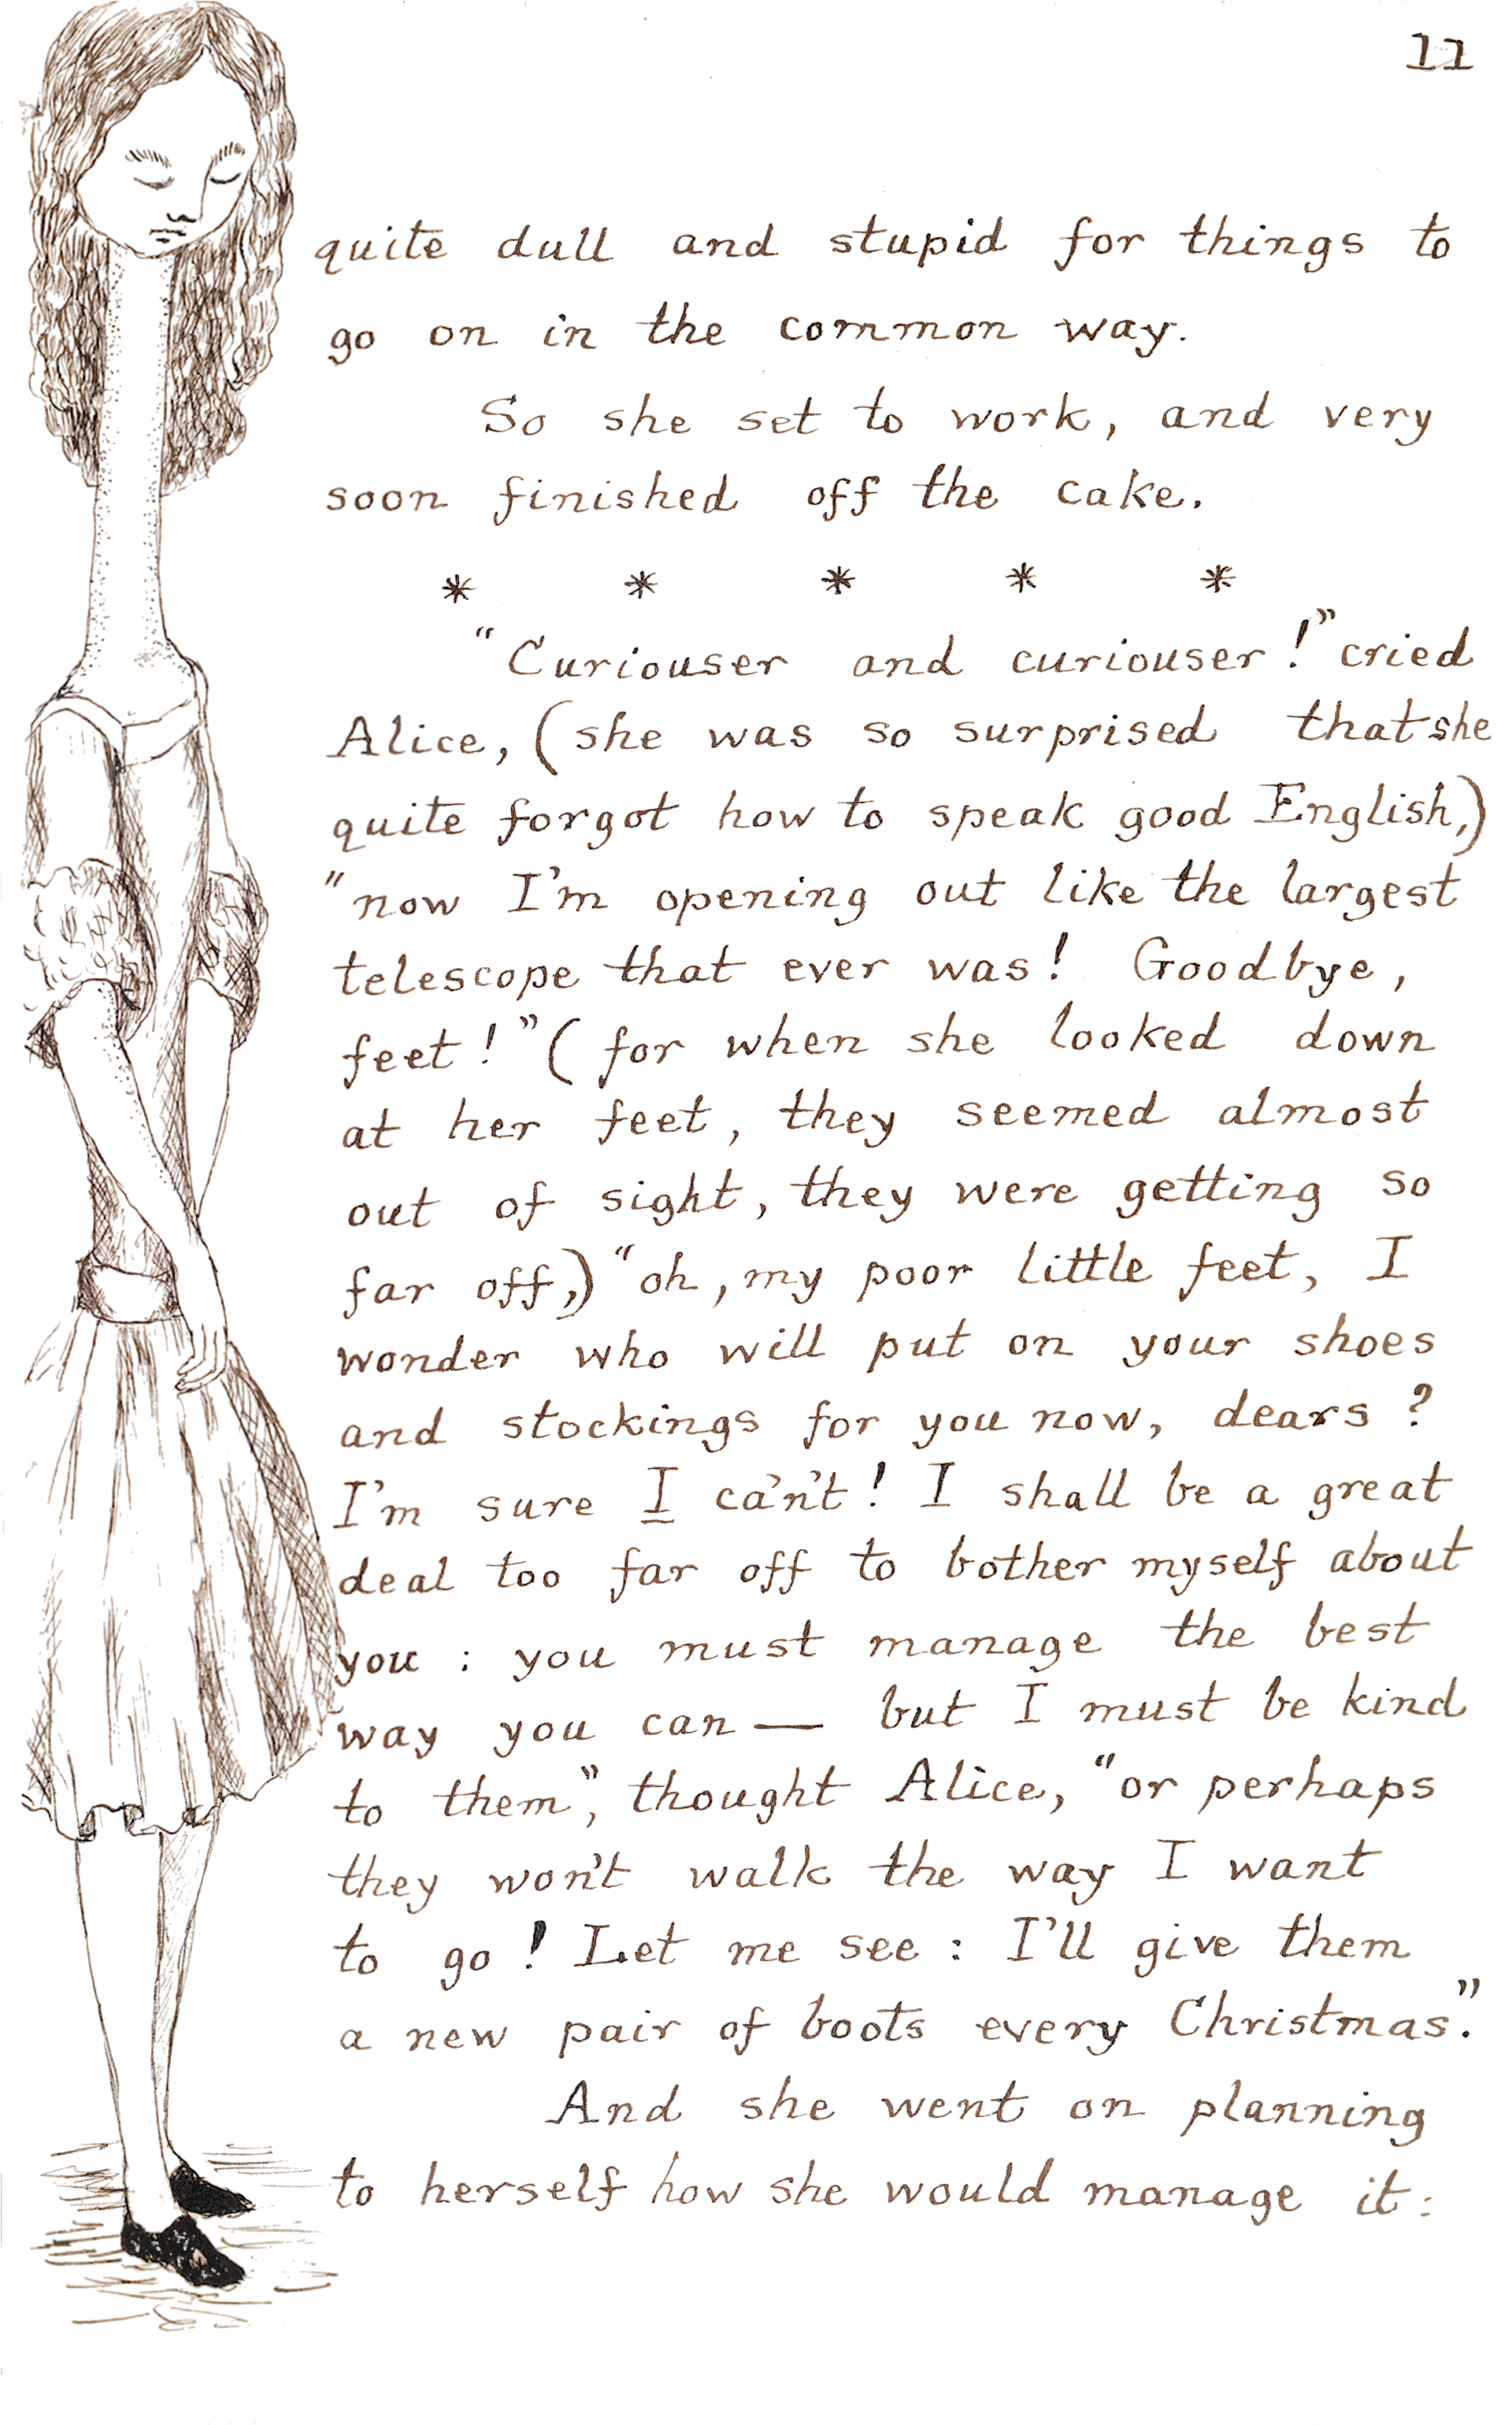 11
quite dull and stupid for things to
go on in the common way.
So she set to work, and very
soon finished off the cake.
* * * * *
"Curiouser and curiouser!" cried
Alice, (she was so surprised that she
quite forgot how to speak good English,)
"now I'm opening out like the largest
telescope that ever was! Goodbye,
feet!" (for when she looked down
at her feet, they seemed almost
out of sight, they were getting so
far off,) "oh, my poor little feet, I
wonder who will put on your shoes
and stockings for you now, dears?
I'm sure I ca'n't! I shall be a great
deal too far off to bother myself about
you: you must manage the best
way you can — but I must be kind
to them", thought Alice, "or perhaps
they won't walk the way I want
to go! Let me see: I'll give them
a new pair of boots every Christmas."
And she went on planning
to herself how she would manage it: